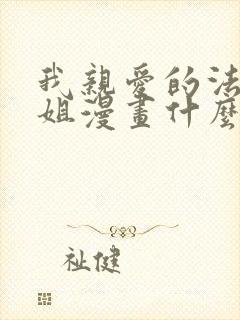 我親愛的法
姐漫畫什麼
祉健